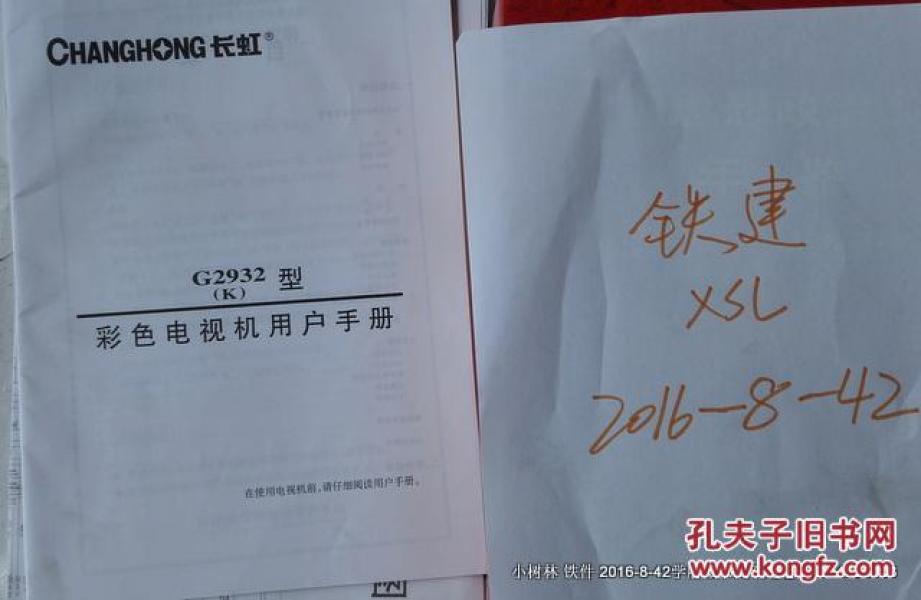 CHANGHONG 长虹®
G2932 型
(K)
彩色电视机用户手册
在使用电视机前,请仔细阅读用户手册。
铁建
XSL
2016-8-42
孔夫子旧书网
www.kongfz.com
小树林 铁件 2016-8-42学
网